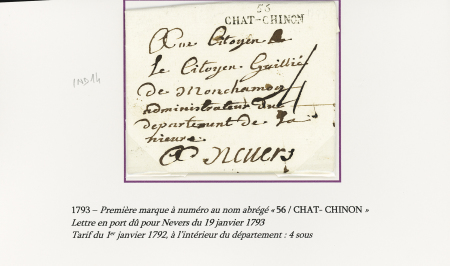 56
CHAT-CHINON
Au Citoyen
Le Citoyen Gaillié
De Monchamoy
administrateur du
departement de la
nieure
A Nevers
IND 14
1793 – Première marque à numéro au nom abrégé « 56 / CHAT- CHINON »
Lettre en port dû pour Nevers du 19 janvier 1793
Tarif du 1er janvier 1792, à l'intérieur du département : 4 sous